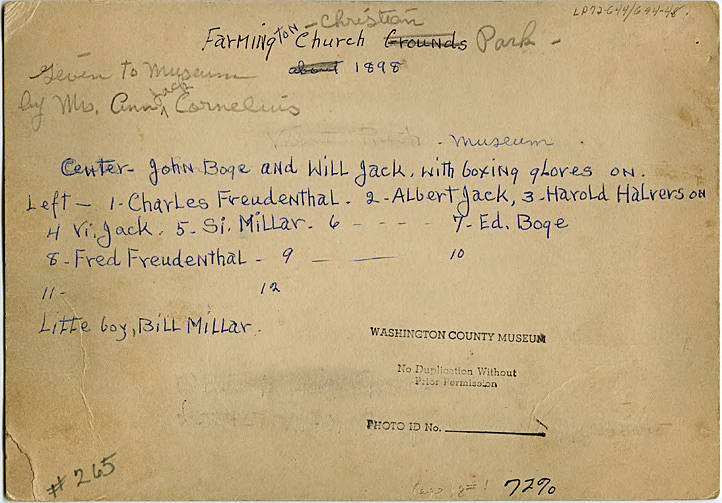 LP72-644/644-48.
Christian
Farmington Church Grounds Park -
about 1898
Given To Museum
by Mrs. Ann Jack Cornelius
Museum
Center - John Boge and Will Jack, with boxing gloves on.
Left - 1- Charles Freudenthal - 2- Albert Jack, 3- Harold Halverson
4 Vi. Jack - 5- Si. Millar - 6 - - - - 7- Ed. Boge
8- Fred Freudenthal - 9 ——— 10
11- 12
Litte boy, Bill Millar.
WASHINGTON COUNTY MUSEUM
No Duplication Without
Prior Permission
PHOTO ID No.
#265
7290